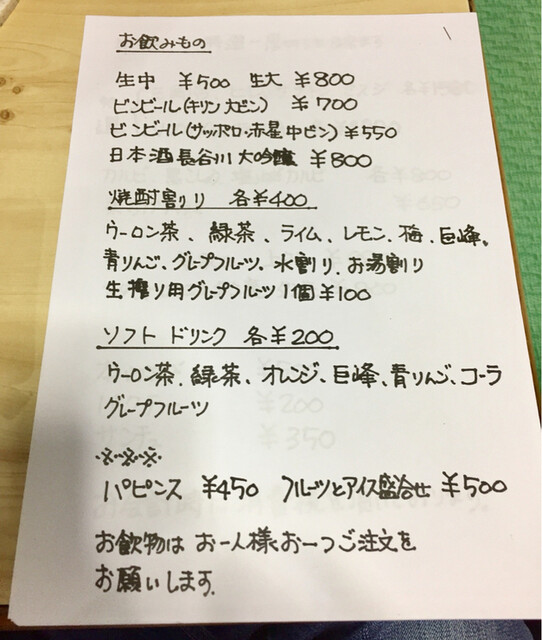 お飲みもの
生中 ￥500 生大 ￥800
ビンビール(キリン大ビン) ￥700
ビンビール(サッポロ・赤星中ビン)￥550
日本酒 長谷川 大吟醸 ￥800
焼酎割り 各￥400
ウーロン茶、緑茶、ライム、レモン、梅、巨峰。
青りんご、グレープフルーツ、水割り、お湯割り
生搾り用グレープフルーツ1個￥100
ソフトドリンク 各￥200
ウーロン茶、緑茶、オレンジ、巨峰、青りんご、コーラ
グレープフルーツ
※※※
パピンス ￥450 フルーツとアイス盛合せ ￥500
お飲物は お一人様お一つご注文を
お願いします.